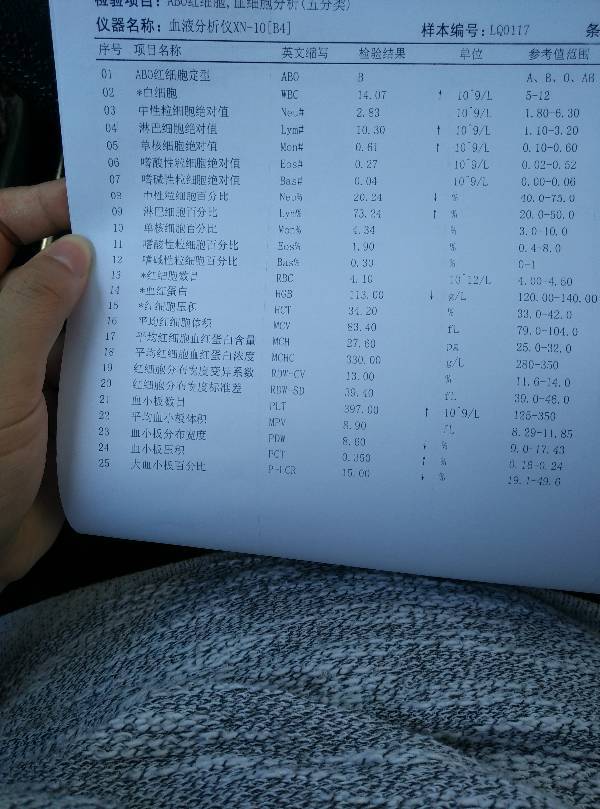 检验项目: ABO红细胞,血细胞分析(五分类)
仪器名称: 血液分析仪XN-10[B4] 样本编号: LQ0117 条
序号 项目名称 英文缩写 检验结果 单位 参考值范围
01 ABO红细胞定型 ABO B A、B、O、AB
02 *白细胞 WBC 14.07 ↑ 10^9/L 5-12
03 中性粒细胞绝对值 Neu# 2.83 10^9/L 1.80-6.30
04 淋巴细胞绝对值 Lym# 10.30 ↑ 10^9/L 1.10-3.20
05 单核细胞绝对值 Mon# 0.61 ↑ 10^9/L 0.10-0.60
06 嗜酸性粒细胞绝对值 Eos# 0.27 10^9/L 0.02-0.52
07 嗜碱性粒细胞绝对值 Bas# 0.04 10^9/L 0.00-0.06
08 中性粒细胞百分比 Neu% 20.24 ↓ % 40.0-75.0
09 淋巴细胞百分比 Lym% 73.24 ↑ % 20.0-50.0
10 单核细胞百分比 Mon% 4.34 % 3.0-10.0
11 嗜酸性粒细胞百分比 Eos% 1.90 % 0.4-8.0
12 嗜碱性粒细胞百分比 Bas% 0.30 % 0-1
13 *红细胞数目 RBC 4.10 10^12/L 4.00-4.50
14 *血红蛋白 HGB 113.00 ↓ g/L 120.00-140.00
15 *红细胞压积 HCT 34.20 % 33.0-42.0
16 平均红细胞体积 MCV 83.40 fL 79.0-104.0
17 平均红细胞血红蛋白含量 MCH 27.60 pg 25.0-32.0
18 平均红细胞血红蛋白浓度 MCHC 330.00 g/L 280-350
19 红细胞分布宽度变异系数 RDW-CV 13.00 % 11.6-14.0
20 红细胞分布宽度标准差 RDW-SD 39.40 fL 39.0-46.0
21 血小板数目 PLT 397.00 ↑ 10^9/L 125-350
22 平均血小板体积 MPV 8.90 fL 8.29-11.85
23 血小板分布宽度 PDW 8.60 ↓ % 9.0-17.43
24 血小板压积 PCT 0.350 ↑ % 0.18-0.24
25 大血小板百分比 P-LCR 15.00 ↓ % 19.1-49.6